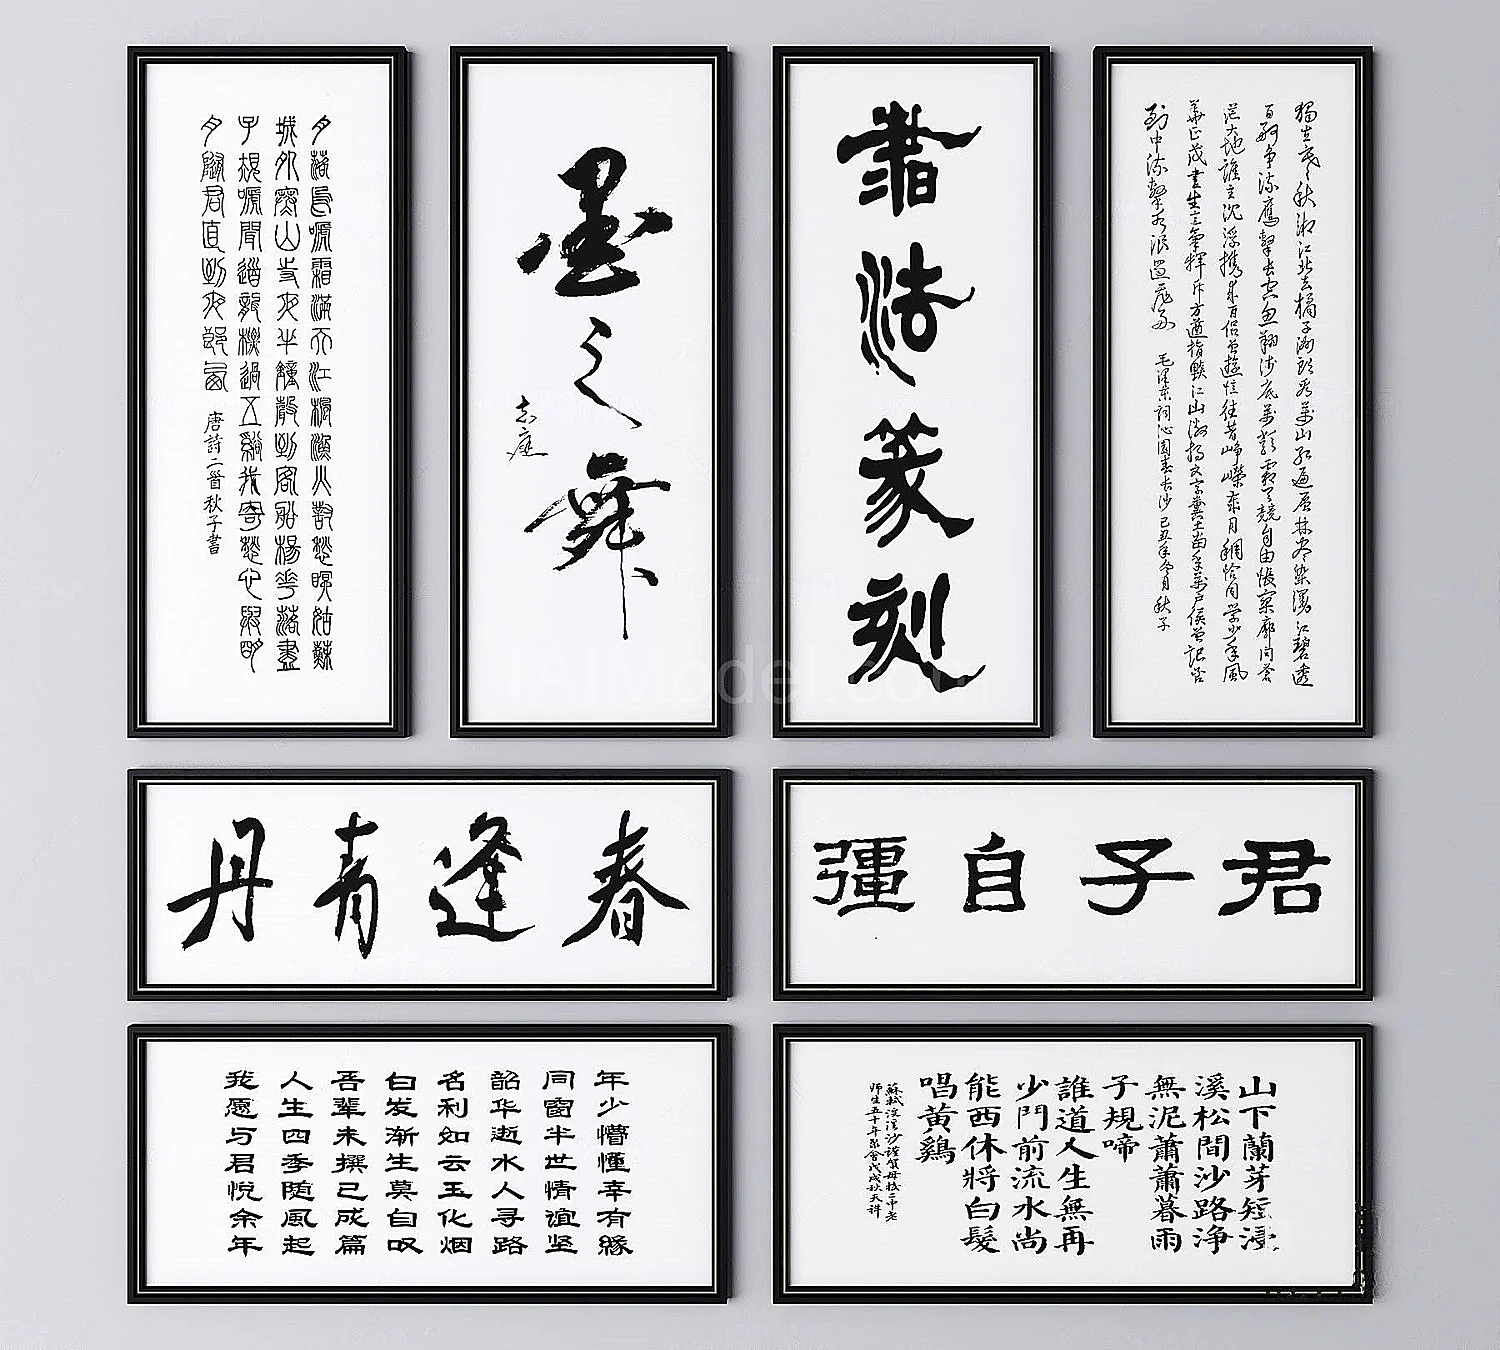 月落烏嗁霜滿天江楓漁火對愁眠姑蘇
城外寒山寺夜半鐘聲到客船楊花落盡
子規嗁聞道龍標過五谿我寄愁心與明
月隨君直到夜郎西
唐詩二首秋子書
墨之舞
志庭
書法篆刻
獨立寒秋湘江北去橘子洲頭看萬山紅遍層林盡染漫江碧透
百舸爭流鷹擊長空魚翔淺底萬類霜天競自由悵寥廓問蒼
茫大地誰主沈浮攜來百侶曾遊憶往昔崢嶸歲月稠恰同學少年風
華正茂書生意氣揮斥方遒指點江山激揚文字糞土當年萬戶侯曾記否
到中流擊水浪遏飛舟
毛澤東詞沁園春長沙己丑年冬月秋子
丹青逢春
君子自彊
年少懵懂幸有緣
同窗半世情谊坚
韶华逝水人寻路
名利如云玉化烟
白发渐生莫自叹
吾辈未撰已成篇
人生四季随風起
我愿与君悦余年
山下蘭芽短浸
溪松間沙路淨
無泥蕭蕭暮雨
子規啼
誰道人生無再
少門前流水尚
能西休將白髮
唱黄鷄
蘇軾浣溪沙謹賀母校二中老
師生五十年聚會戊戌秋天祥